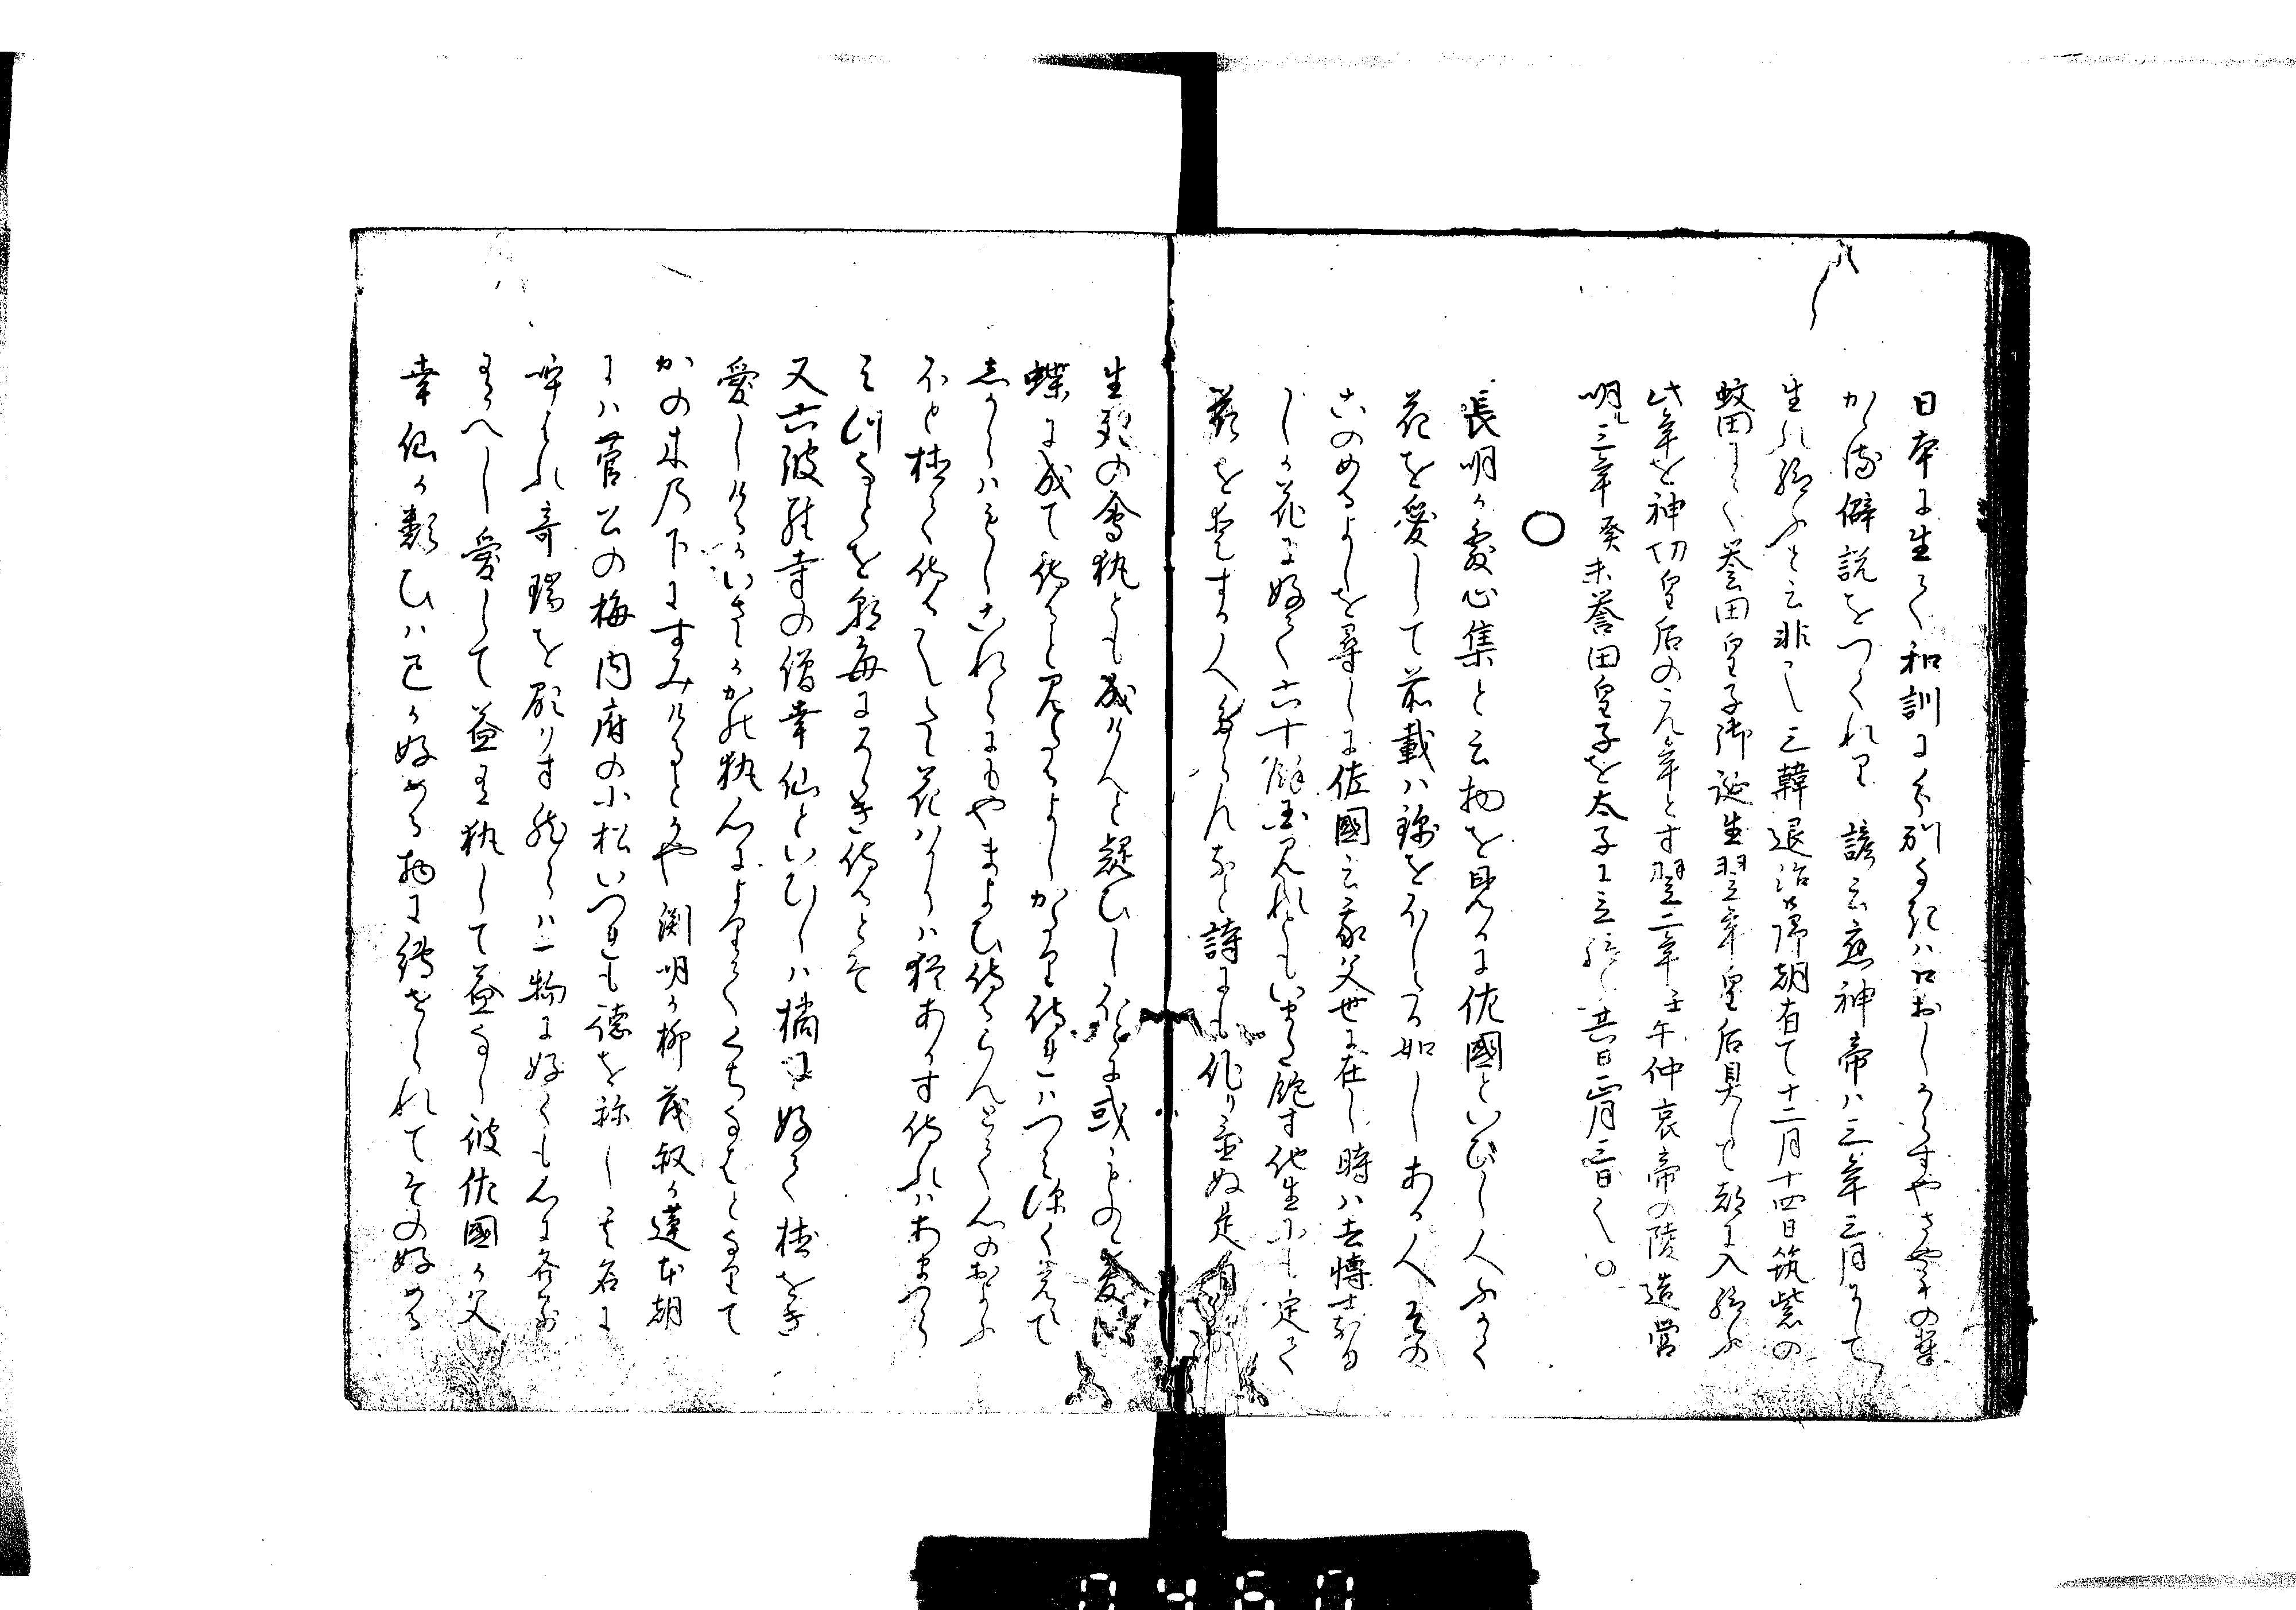 日本に生て和訓に分別なきは口おしからすやさや手の葉
かゝる僻説をつくれり 諺云應神帝は三年三月にして
生れ給ふと云非也三韓退治帰朝有て十二月十四日筑紫の
蚊田にて誉田皇子御誕生翌年皇后具して都に入給ふ
此年を神功皇后の元年とす翌二年壬午仲哀帝の陵造営
明ル三年癸未誉田皇子を太子に立給ふ 其日正月三日也
○
長明か発心集と云物を見るに佐國といひし人ふかく
花を愛して前載は錦をおしたる如しある人その
このめるよしを尋しに佐國云我父世に在し時は去博士なり
しか花に好て六十餘国見れともいまた飽す他生にも定て
花を愛する人たらんなと詩にも作り置ぬ是自
生死の會執とも成けんと疑ひし程に或ものゝ夢に
蝶に成て侍ると見たるよしかたり侍れはつみ深く覚て
しからはもしこれらにもやまよひ侍らんとて心のおよふ
ほと植て侍るそして花はかりは猶あかす侍れはあまつら
みつなとを朝毎にそゝき侍るとそ
又六波羅寺の僧幸仙といひしは橘に好て植をき
愛しけるかいさゝかの執心によりてくちなはとなりて
かの木乃下にすみけるとかや 渕明か柳茂叔か蓮本朝
には菅公の梅内府の小松いつれも徳を称し其名に
呼はれ奇瑞を顕はす然らは一物に好くも心に各別
有へし愛して益有執して益なし彼佐國か父
幸仙か類ひは己か好める物に縛せられてその好める